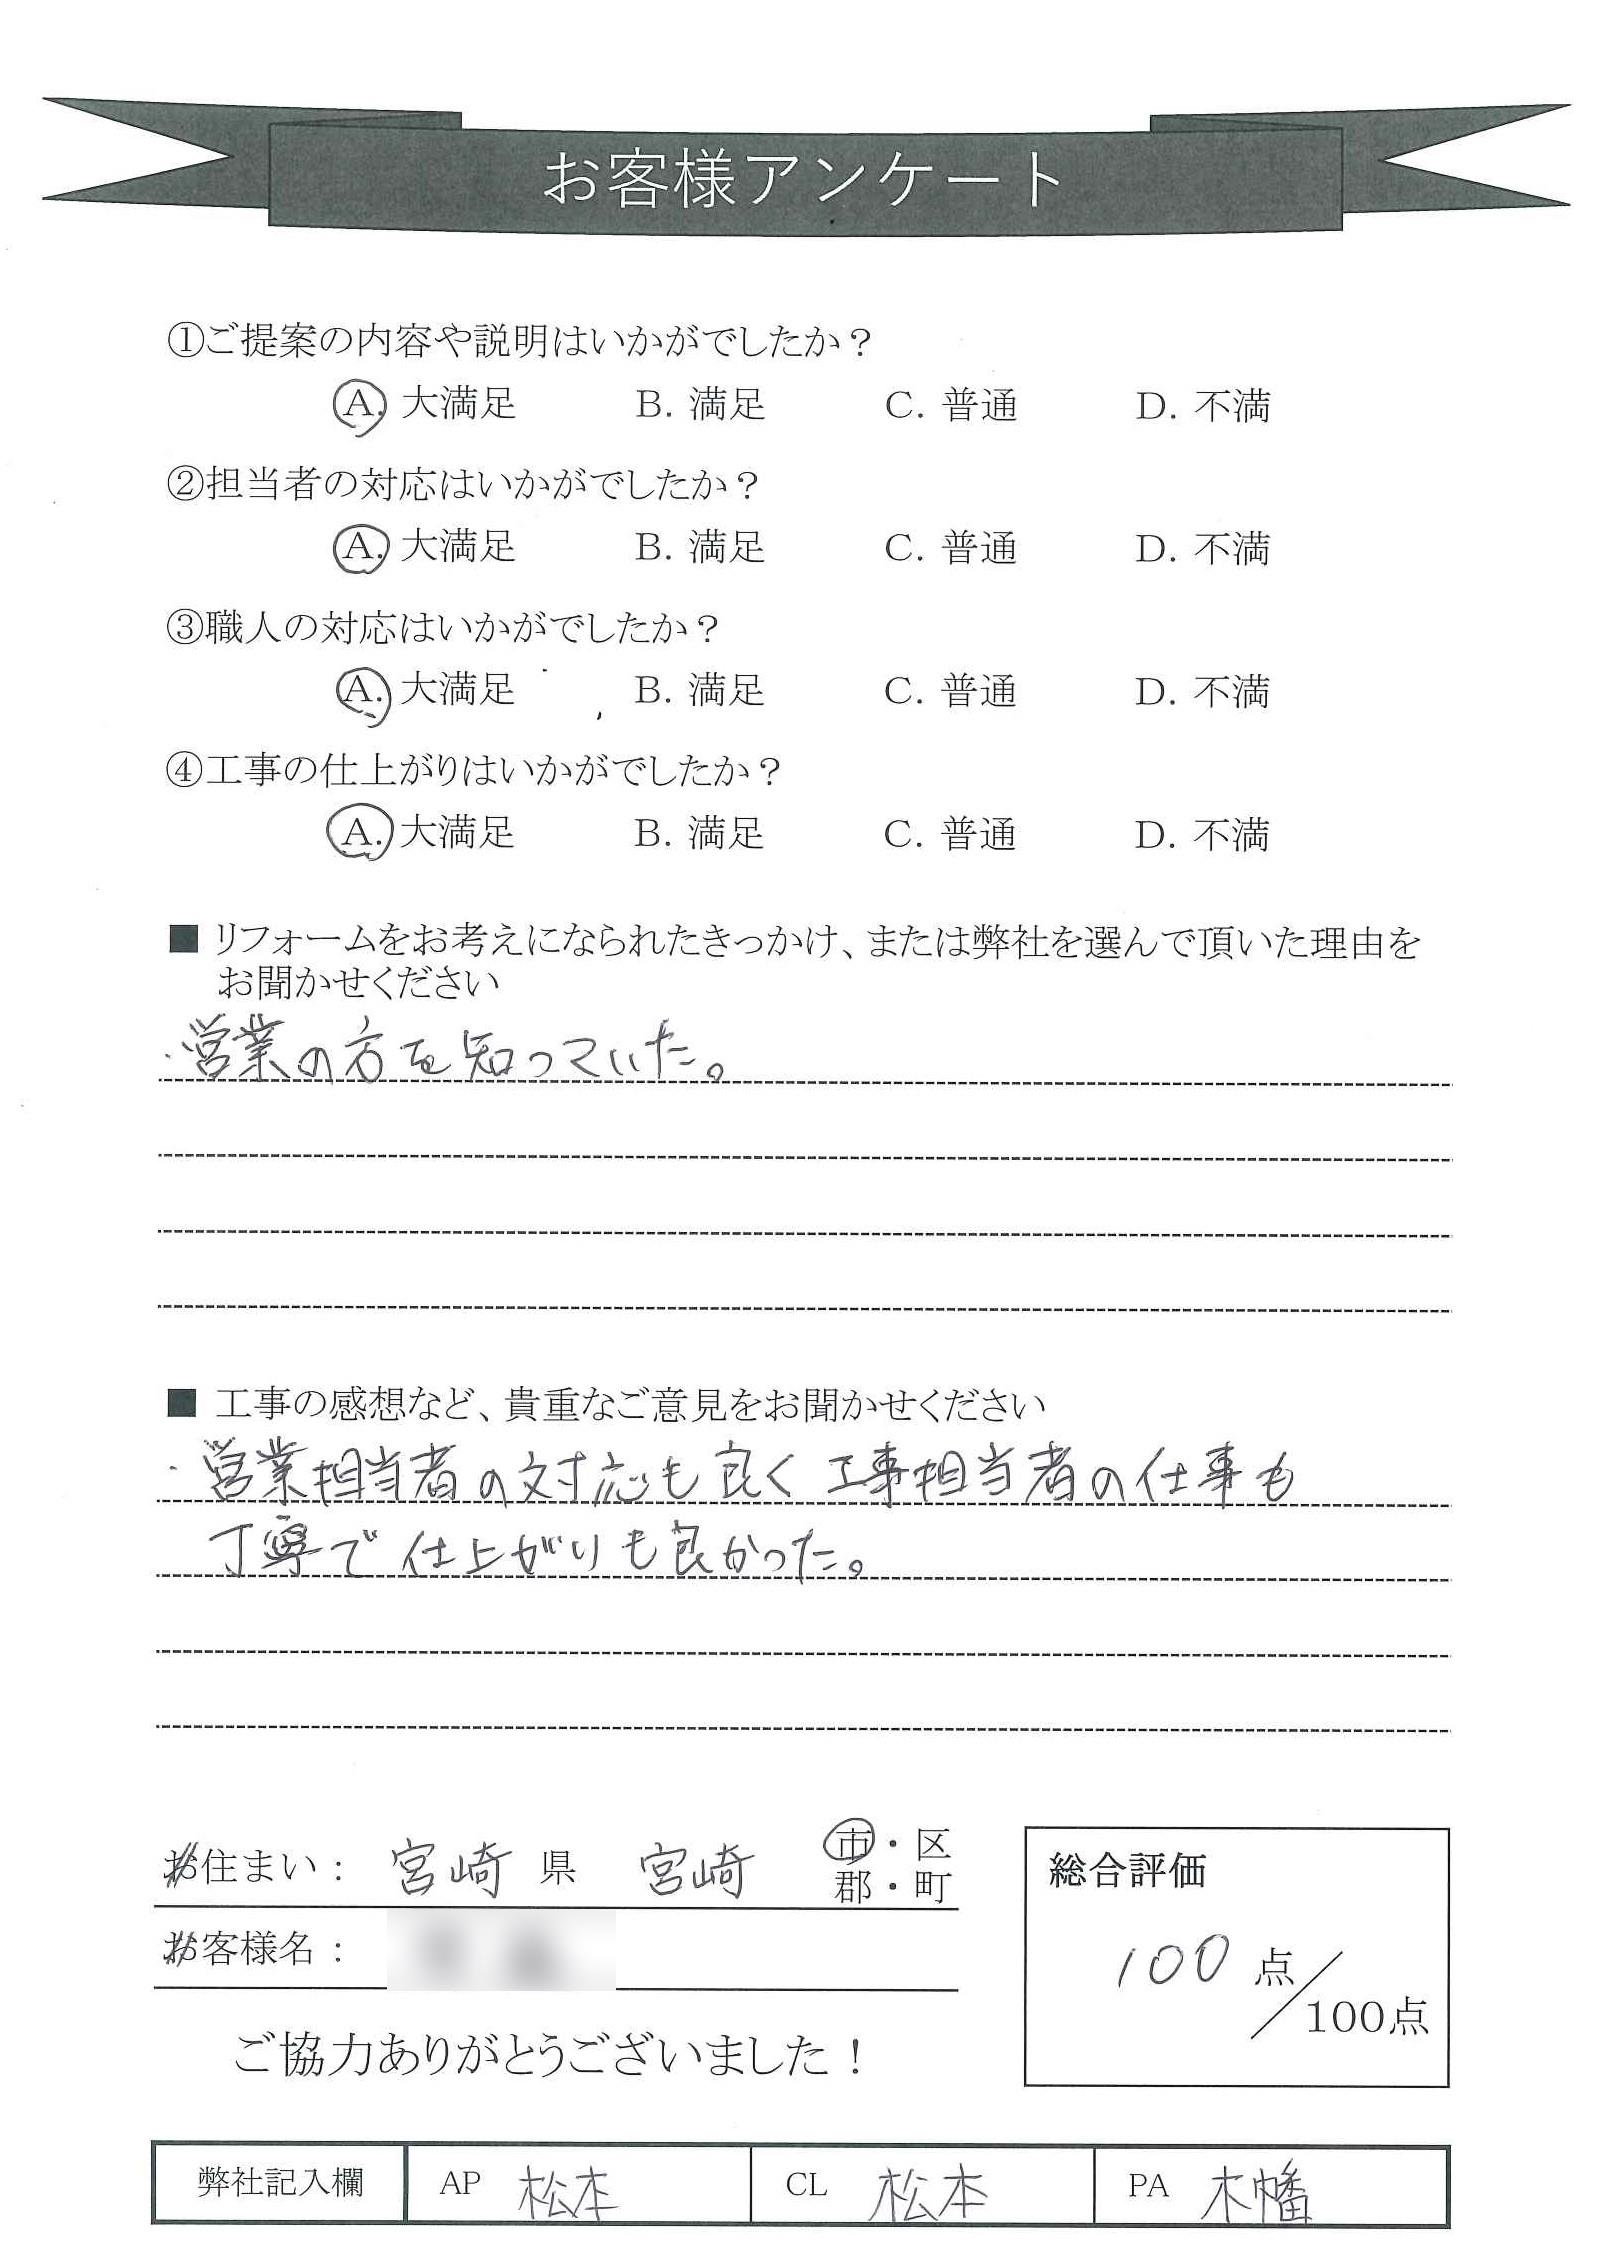 お客様アンケート
①ご提案の内容や説明はいかがでしたか？
A. 大満足 B. 満足 C. 普通 D. 不満
②担当者の対応はいかがでしたか？
A. 大満足 B. 満足 C. 普通 D. 不満
③職人の対応はいかがでしたか？
A. 大満足 B. 満足 C. 普通 D. 不満
④工事の仕上がりはいかがでしたか？
A. 大満足 B. 満足 C. 普通 D. 不満
■ リフォームをお考えになられたきっかけ、または弊社を選んで頂いた理由を
お聞かせください
・営業の方を知っていた。
■ 工事の感想など、貴重なご意見をお聞かせください
・営業担当者の対応も良く 工事担当者の仕事も
丁寧で 仕上がりも良かった。
お住まい： 宮崎 県 宮崎 市・区
郡・町
お客様名：
ご協力ありがとうございました！
総合評価
100 点／100点
弊社記入欄 AP 松本 CL 松本 PA 木幡